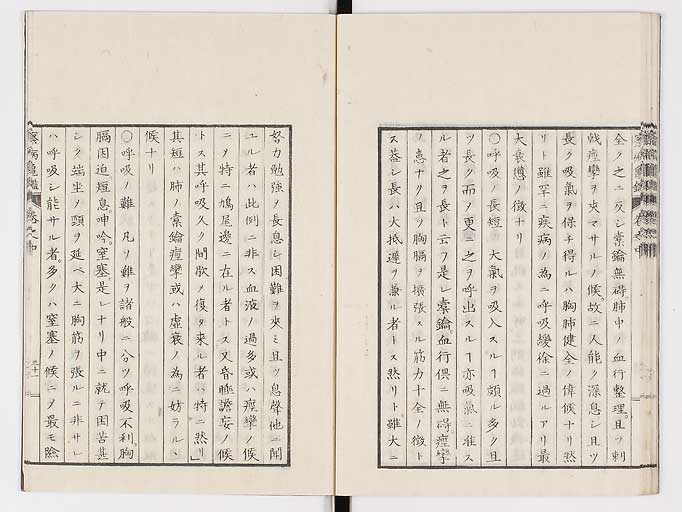 全ク之ニ反シ橐鑰無碍肺中ノ血行整理且ツ刺
戟痙攣ヲ夾マサルノ候故ニ人能ク深息シ且ツ
長ク吸氣ヲ保チ得ルハ胸肺健全ノ偉候ナリ然
リト雖罕ニ疾病ノ為ニ呼吸緩徐ニ過ルアリ最
大衰憊ノ徴ナリ
〇呼吸ノ長短 大氣ヲ吸入スルヿ頗ル多ク且
ツ長ク而ノ更ニ之ヲ呼出スルヿ亦吸氣ニ准ス
ル者之ヲ長ト云フ是レ橐鑰血行倶ニ無碍痙攣
ノ患ナク且ツ胸膈ヲ擴張スル筋力十全ノ徴ト
ス蓋シ長ハ大抵遲ヲ兼ル者トス然リト雖大ニ
努力勉強ノ長息シ困難ヲ夾ミ且ツ息聲他ニ聞
ユル者ハ此例ニ非ス血液ノ過多或ハ痙攣ノ候
ニノ特ニ鳩尾邊ニ在ル者トス又昏睡譫妄ノ候
トス其呼吸久ク間歇ノ復タ来ル者ハ特ニ然リ
其短ハ肺ノ橐鑰痙攣或ハ虚衰ノ為ニ妨ラルヽ
候ナリ
〇呼吸ノ難 凡ソ難ヲ諸般ニ分ツ呼吸不利胸
膈困迫短息呻吟窒塞是レナリ中ニ就テ困苦甚
シク端坐ノ頸ヲ延ベ大ニ胸筋ヲ張ルニ非サレ
ハ呼吸シ能サル者多クハ窒塞ノ候ニノ最モ險
察病亀鑑 巻之中
三十